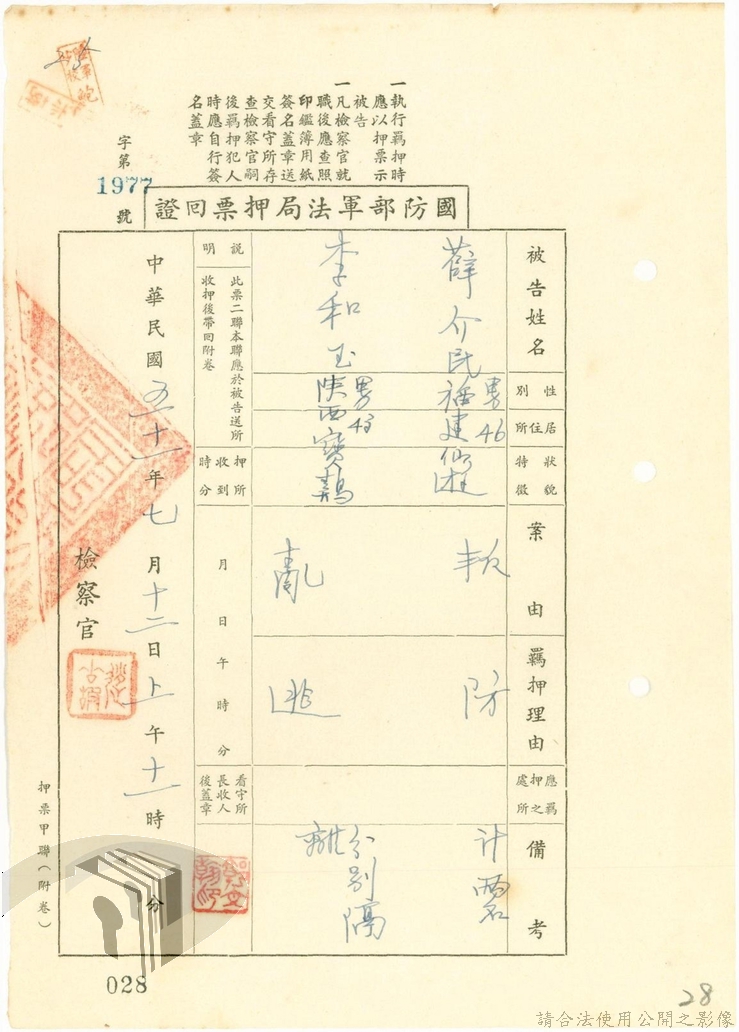 一執行羈押時
應以押票示
被告
一凡檢察官就
職後應查照
印鑑簿用紙
簽名蓋章送
交看守所存
查檢察官嗣
後羈押犯人
時應自行簽
名蓋章
字第
1977
號
國防部軍法局押票回證
被告姓名
薛介民
李和玉
性別
男
男
居住所
46
43
福建仙遊
陝西寶鷄
狀貌
特徵
案由
叛亂
羈押理由
防逃
應羈
押之
處所
備考
計兩名
分別隔離
說明
此票二聯本聯應於被告送所
收押後帶回附卷
押所
收到
時分
月日午時分
看守所
長收人
後蓋章
鄭文翰印
中華民國五十一年七月十二日上午十一時分
檢察官
押票甲聯(附卷)
028
28
請合法使用公開之影像